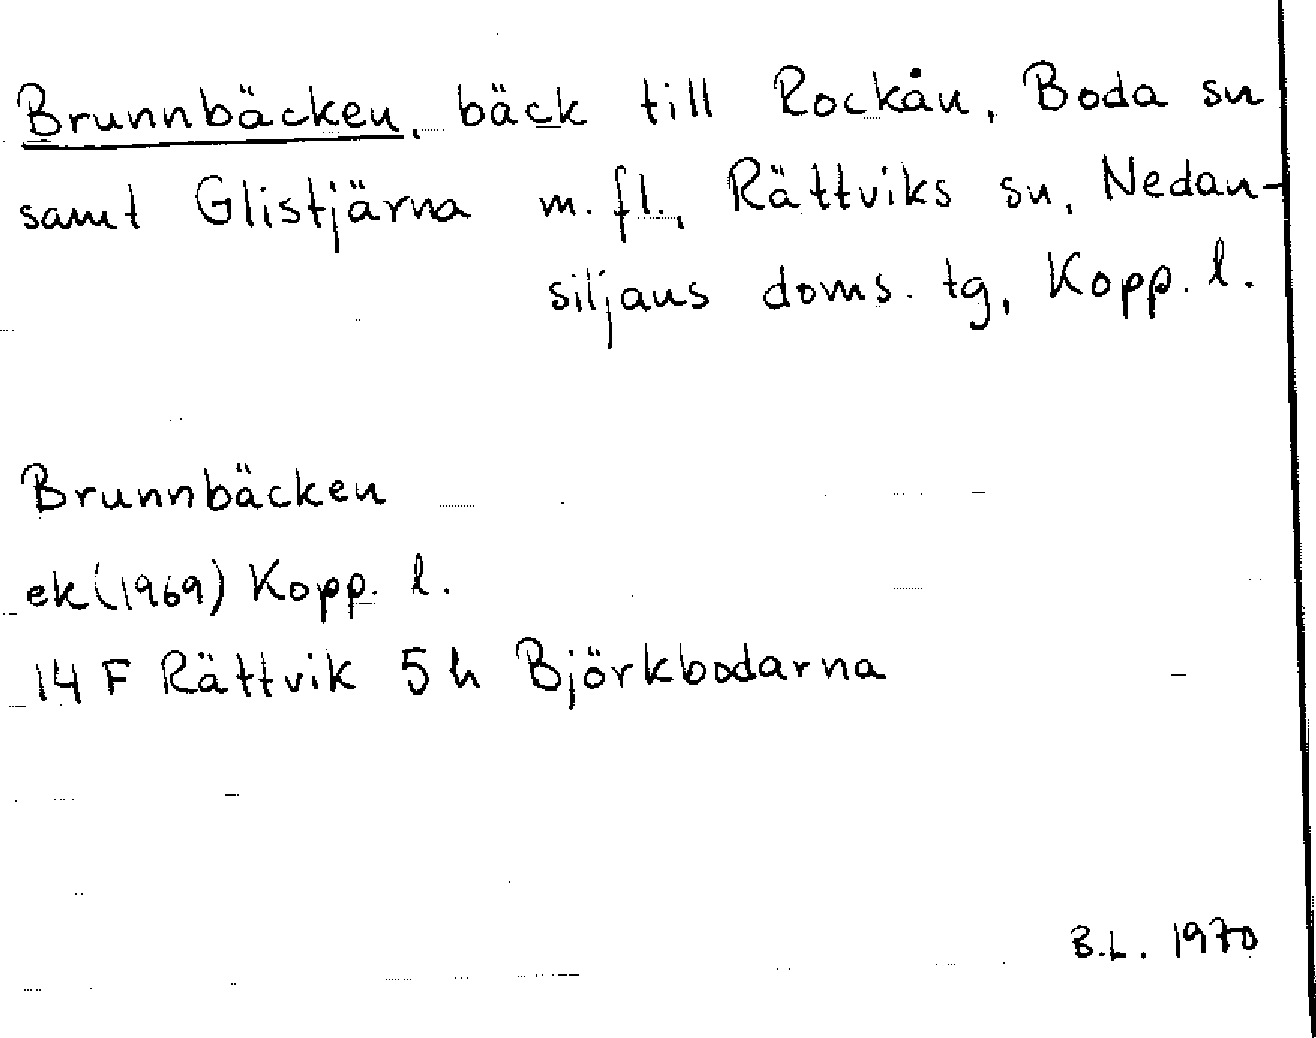 Brunnbäcken, bäck till Rockån, Boda sn
samt Glistjärna m.fl., Rättviks sn, Nedan-
siljans doms. tg, Kopp. l.
Brunnbäcken
ek (1969) Kopp. l.
14 F Rättvik 5 h Björkbodarna
B.L. 1970